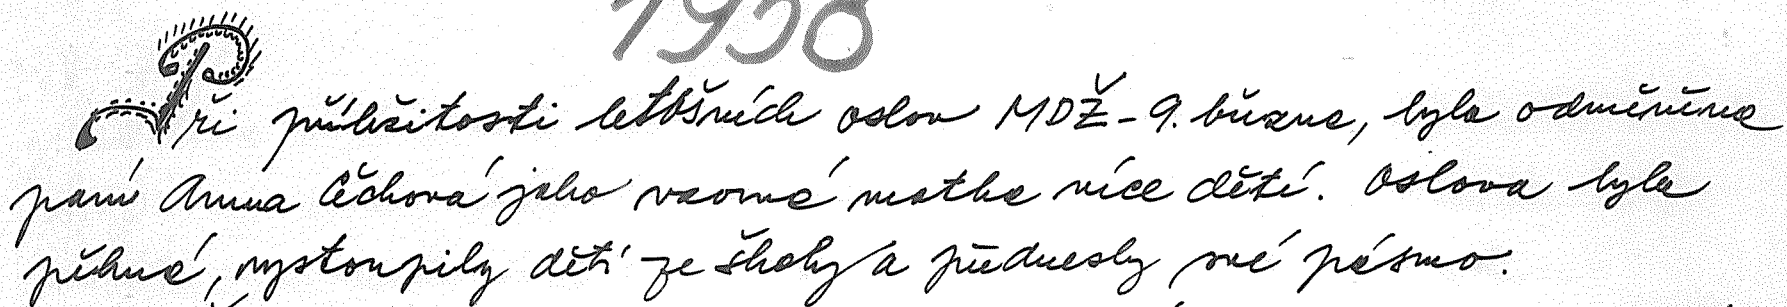 1958
Při příležitosti letošních oslav MDŽ - 9. března, byla odměněna
paní Anna Čěchová jako vzorná matka více dětí. Oslava byla
pěkná, vystoupily děti ze školy a přednesly své pásmo.